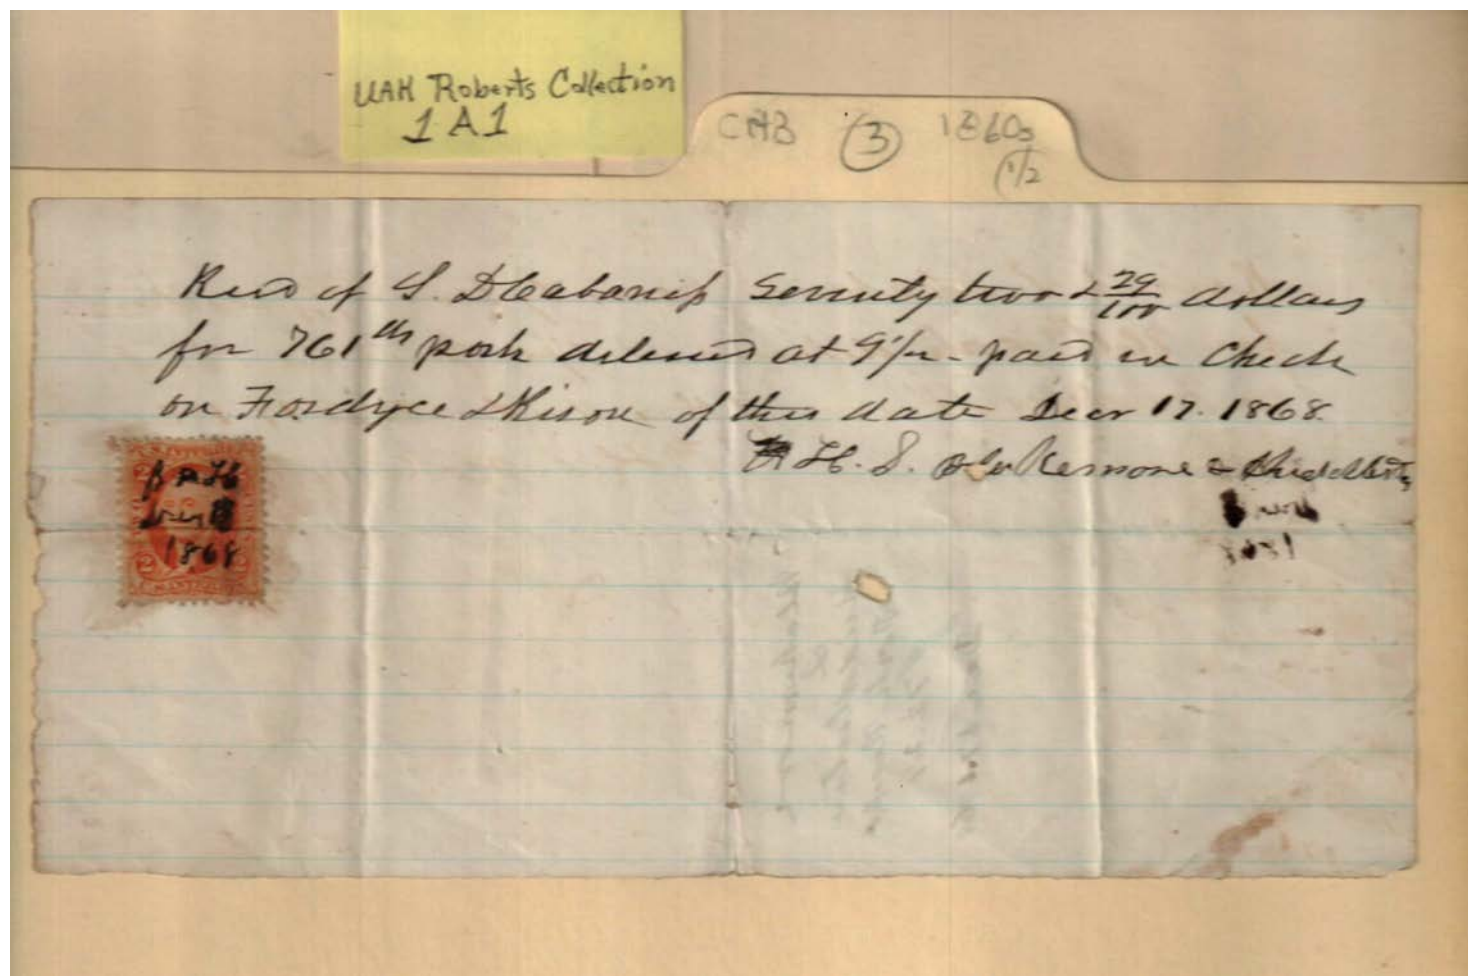 UAH Roberts Collection
1A1
CAB 3 1860s
1/2
Recd of S. D Cabaniss Seventy two & 29/100 dollars
for 761 lb pork delivered at 9 1/2 - paid in Check
on Fordyce & Rison of this date Decr 17. 1868
H. S. & Huddleston
1868
2 2